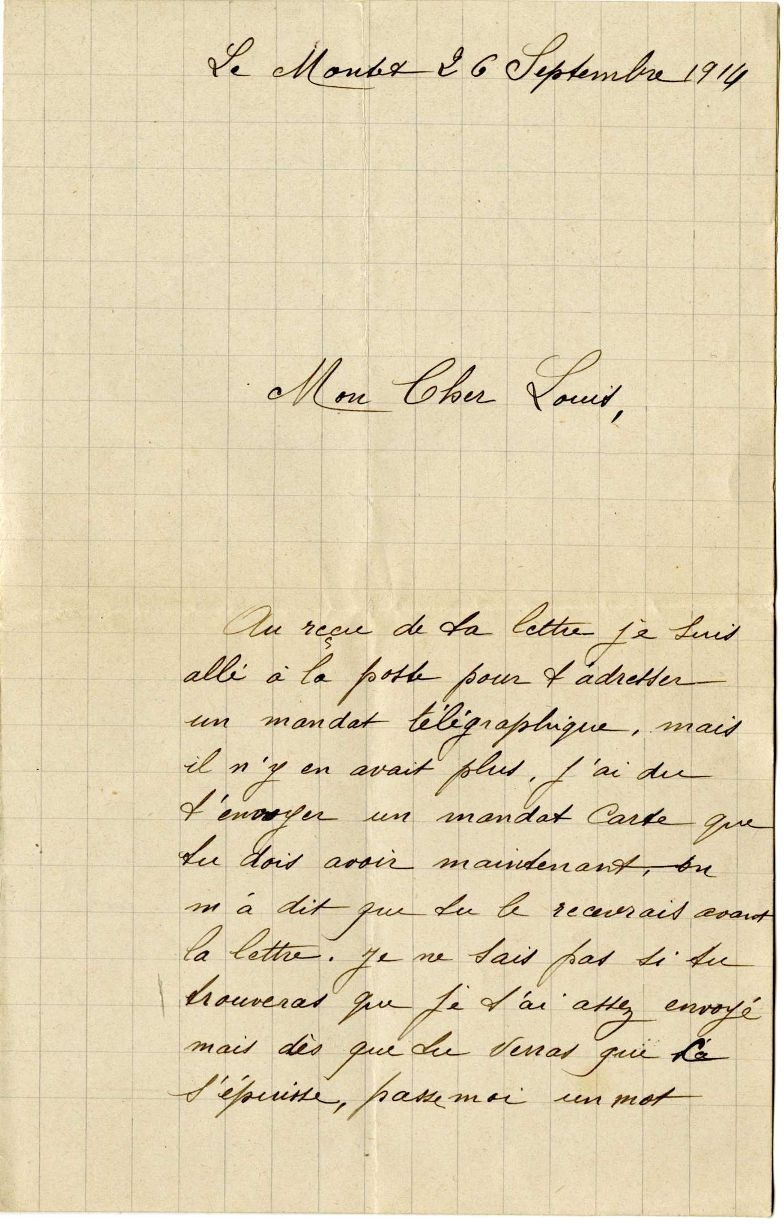 Le Montet 26 Septembre 1914
Mon Cher Louis,
Au reçu de ta lettre je suis
allé à la poste pour t'adresser
un mandat télégraphique, mais
il n'y en avait plus, j'ai du
t'envoyer un mandat carte que
tu dois avoir maintenant, on
m'à dit que tu le recevrais avant
la lettre. je ne sais pas si tu
trouveras que je t'ai assez envoyé
mais dès que tu verras que ça
s'épuisse, passe moi un mot